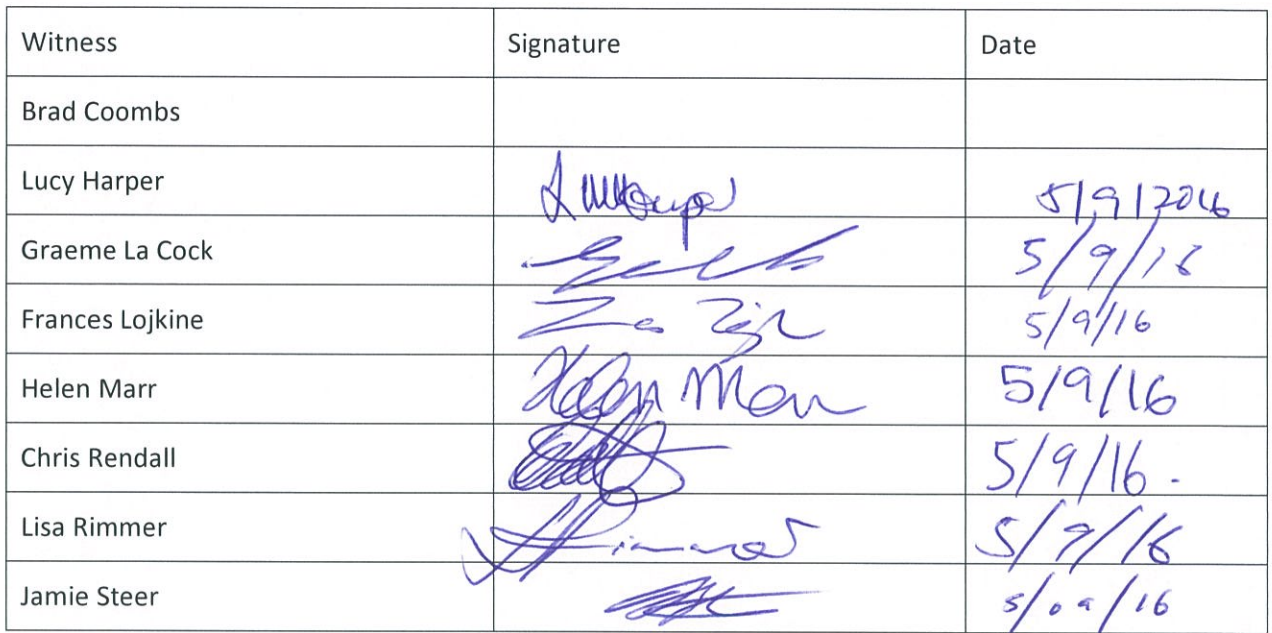 Witness Signature Date
Brad Coombs
Lucy Harper 5/9/2016
Graeme La Cock 5/9/16
Frances Lojkine 5/9/16
Helen Marr Helen Marr 5/9/16
Chris Rendall 5/9/16.
Lisa Rimmer 5/9/16
Jamie Steer 5/09/16